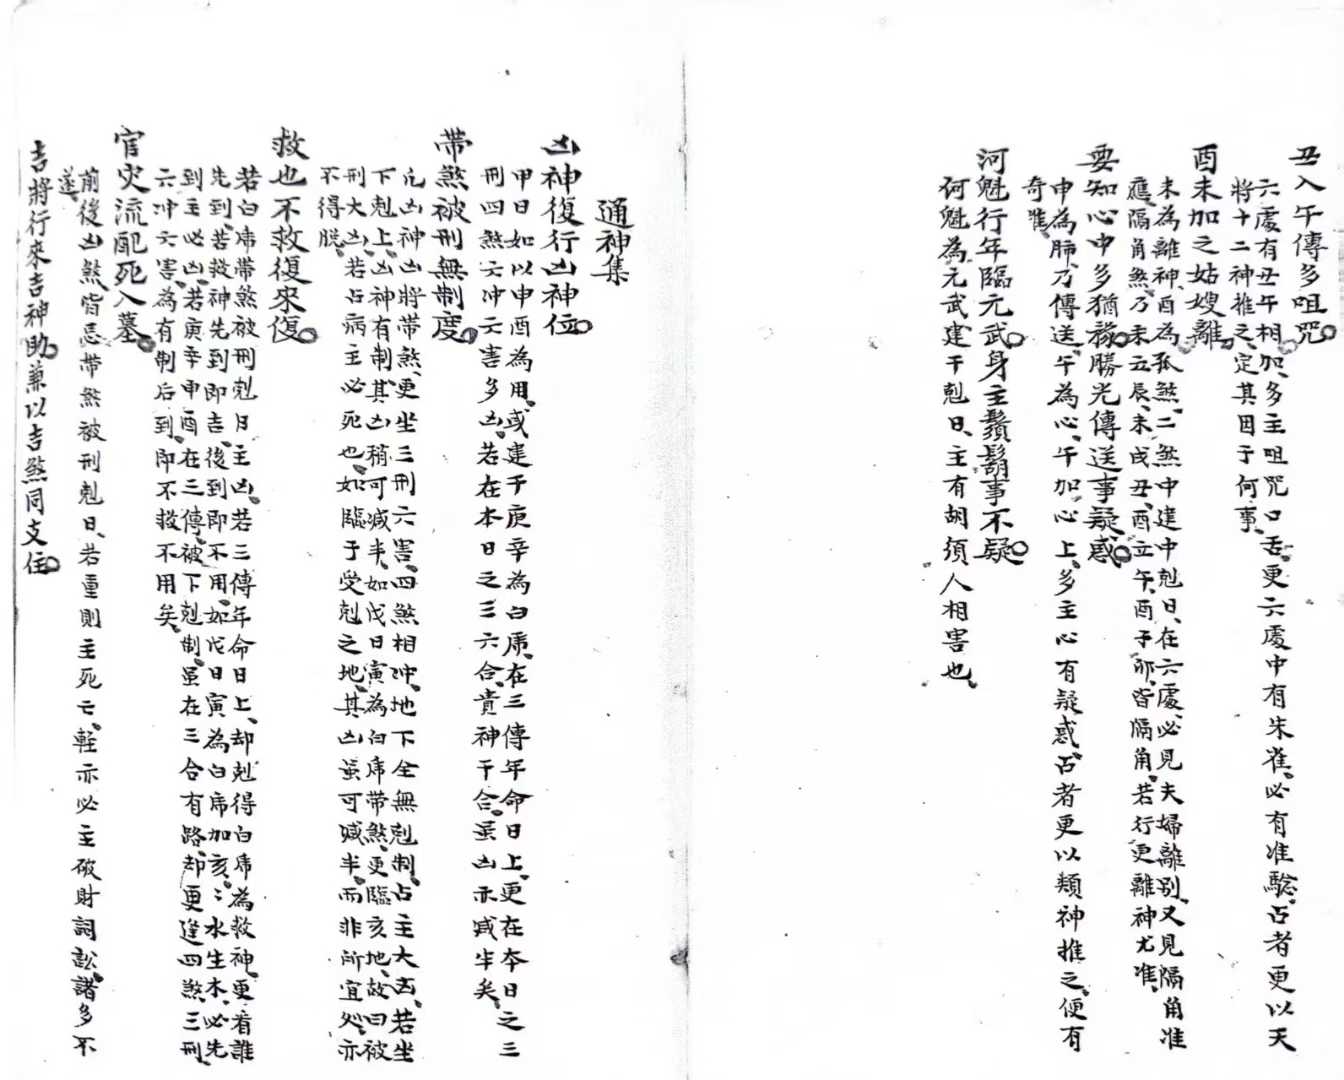 丑入午傳多咀咒
六處有丑午相加多主咀咒口舌更六處中有朱雀必有准驗占者更以天
將十二神推之定其因于何事
酉未加之姑嫂離
未為離神酉為孤煞二煞中建中剋日在六處必見夫婦離别又見隔角准
應隔角煞乃未丑辰未戌丑酉立午酉子卯皆隔角若行更離神尤准
要知心中多猶豫勝光傳送事疑惑
申為肺乃傳送午為心午加心上多主心有疑惑占者更以類神推之便有
奇准
河魁行年臨元武身主鬚鬍事不疑
何魁為元武建干剋日主有胡須人相害也
通神集
凶神復行凶神位
甲日如以申酉為用或建于庚辛為白虎在三傳年命日上更在本日之三
刑四煞六冲六害多凶若在本日之三六合貴神干合虽凶亦减半矣
帶煞被刑無制度
凡凶神凶將帶煞更坐三刑六害四煞相冲地下全無剋制占主大凶若坐
下剋上凶神有制其凶稍可减半如戊日寅為白虎帶煞更臨亥地故曰被
刑大凶若占病主必死也如臨于受剋之地其凶虽可减半而非所宜处亦
不得脱
救也不救復來復
若白虎帶煞被刑剋日主凶若三傳年命日上却剋得白虎為救神更看誰
先到若救神先到即吉後到即不用如戊日寅為白虎加亥亥水生木必先
到主必凶若庚辛申酉在三傳被下剋制虽在三合有路却更逢四煞三刑
六冲六害為有制后到即不救不用矣
官灾流配死入墓
前後凶煞皆忌帶煞被刑剋日若重則主死亡軽亦必主破財詞訟諸多不
遂
吉將行來吉神助兼以吉煞同支住